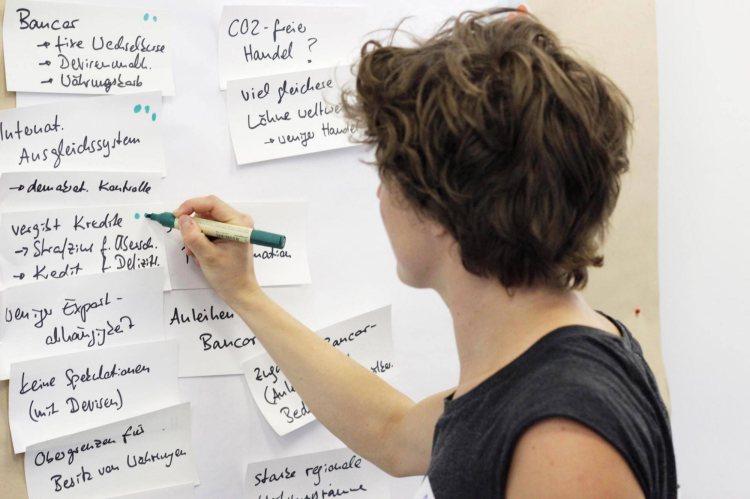 Bancor
→ fixe Wechselkurse
→ Devisenmarkt.
→ Währungskorb
Internat.
Ausgleichssystem
→ demokrat. Kontrolle
vergibt Kredite
→ Strafzins f. Übersch.
→ Kredit f. Defizit
weniger Export-
abhängigkeit
keine Spekulationen
(mit Devisen)
Obergrenzen für
Besitz von Währungen
CO2-freier
Handel?
viel gleichere
Löhne weltwe
→ weniger Handel
Anleihen
Bancor
Bancor-
starke regionale